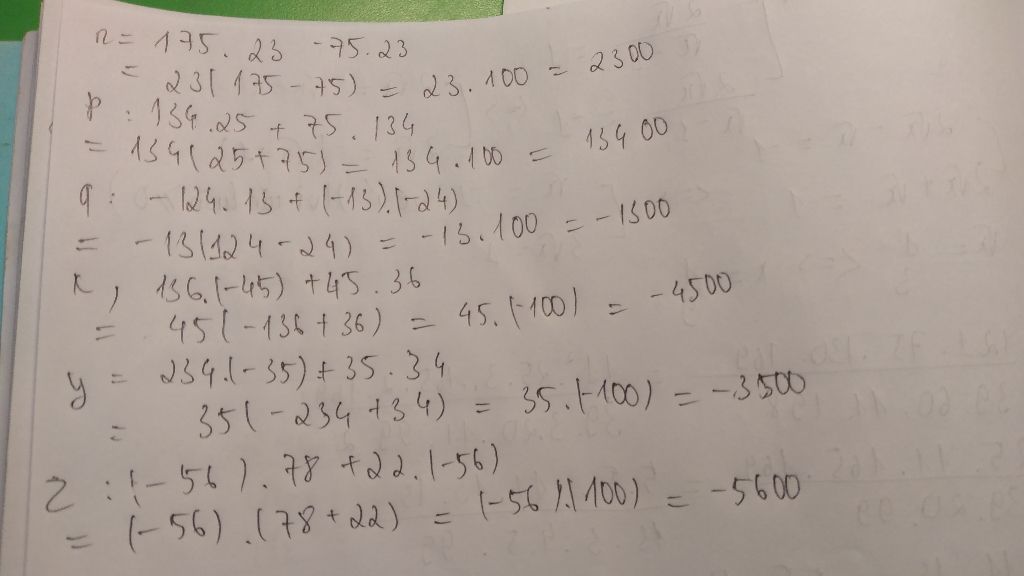 n = 175 . 23 - 75 . 23
= 23( 175 - 75) = 23 . 100 = 2300
p : 134 . 25 + 75 . 134
= 134( 25 + 75) = 134 . 100 = 13400
q : - 124 . 13 + (-13).(-24)
= -13(124 - 24) = -13 . 100 = -1300
x , 136.(-45) + 45 . 36
= 45( -136 + 36) = 45.(-100) = -4500
y = 234.(-35) + 35 . 34
= 35( -234 + 34) = 35.(-100) = -3500
Z : (-56) . 78 + 22.(-56)
= (-56) .(78 + 22) = (-56).(100) = -5600